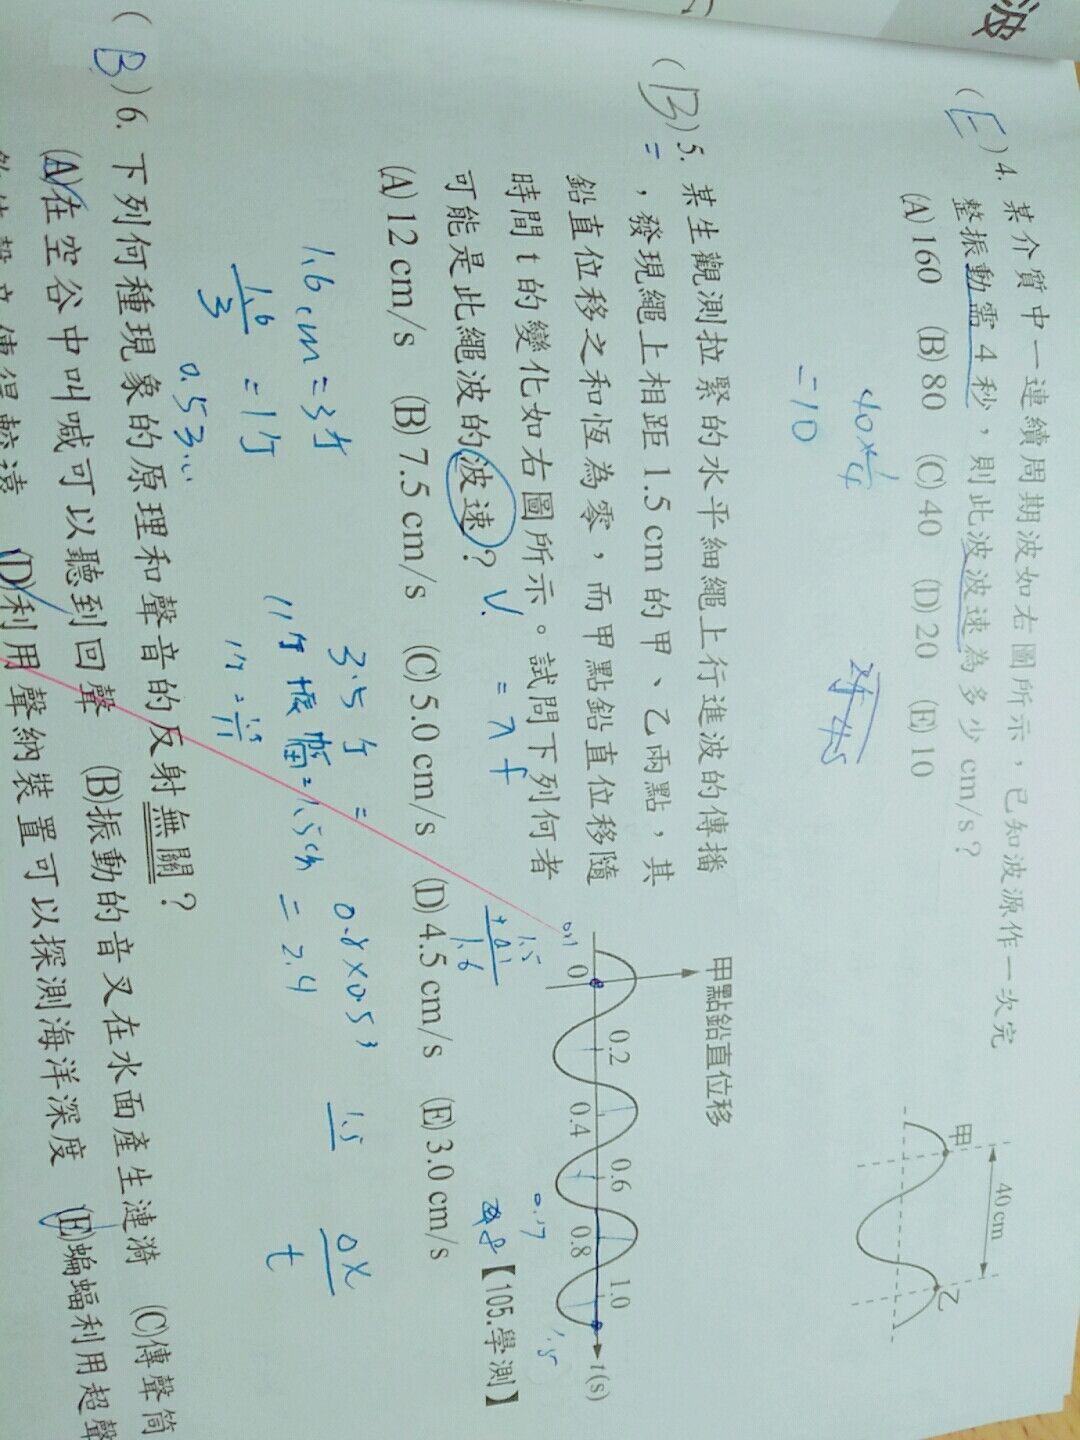 波
(E) 4. 某介質中一連續周期波如右圖所示，已知波源作一次完
整振動需 4 秒，則此波波速為多少 cm/s？
(A) 160 (B) 80 (C) 40 (D) 20 (E) 10
40cm
甲
乙
40×1/4
=10
(B) 5. 某生觀測拉緊的水平細繩上行進波的傳播
=
，發現繩上相距 1.5 cm 的甲、乙兩點，其
鉛直位移之和恆為零，而甲點鉛直位移隨
時間 t 的變化如右圖所示。試問下列何者
可能是此繩波的波速？
V.
= λf
(A) 12 cm/s (B) 7.5 cm/s (C) 5.0 cm/s (D) 4.5 cm/s (E) 3.0 cm/s
【105.學測】
甲點鉛直位移
0 0.2 0.4 0.6 0.8 1.0 t(s)
1.5
+0.1
1.6
0.17
1.5
1.6cm=3个
1.6/3 =1个
0.53...
3.5个 =
11个振幅=1.5cm
=2.4
0.8×0.53
1.5
t
(B) 6. 下列何種現象的原理和聲音的反射無關？
(A)在空谷中叫喊可以聽到回聲 (B)振動的音叉在水面產生漣漪 (C)傳聲筒
(D)利用聲納裝置可以探測海洋深度 (E)蝙蝠利用超聲